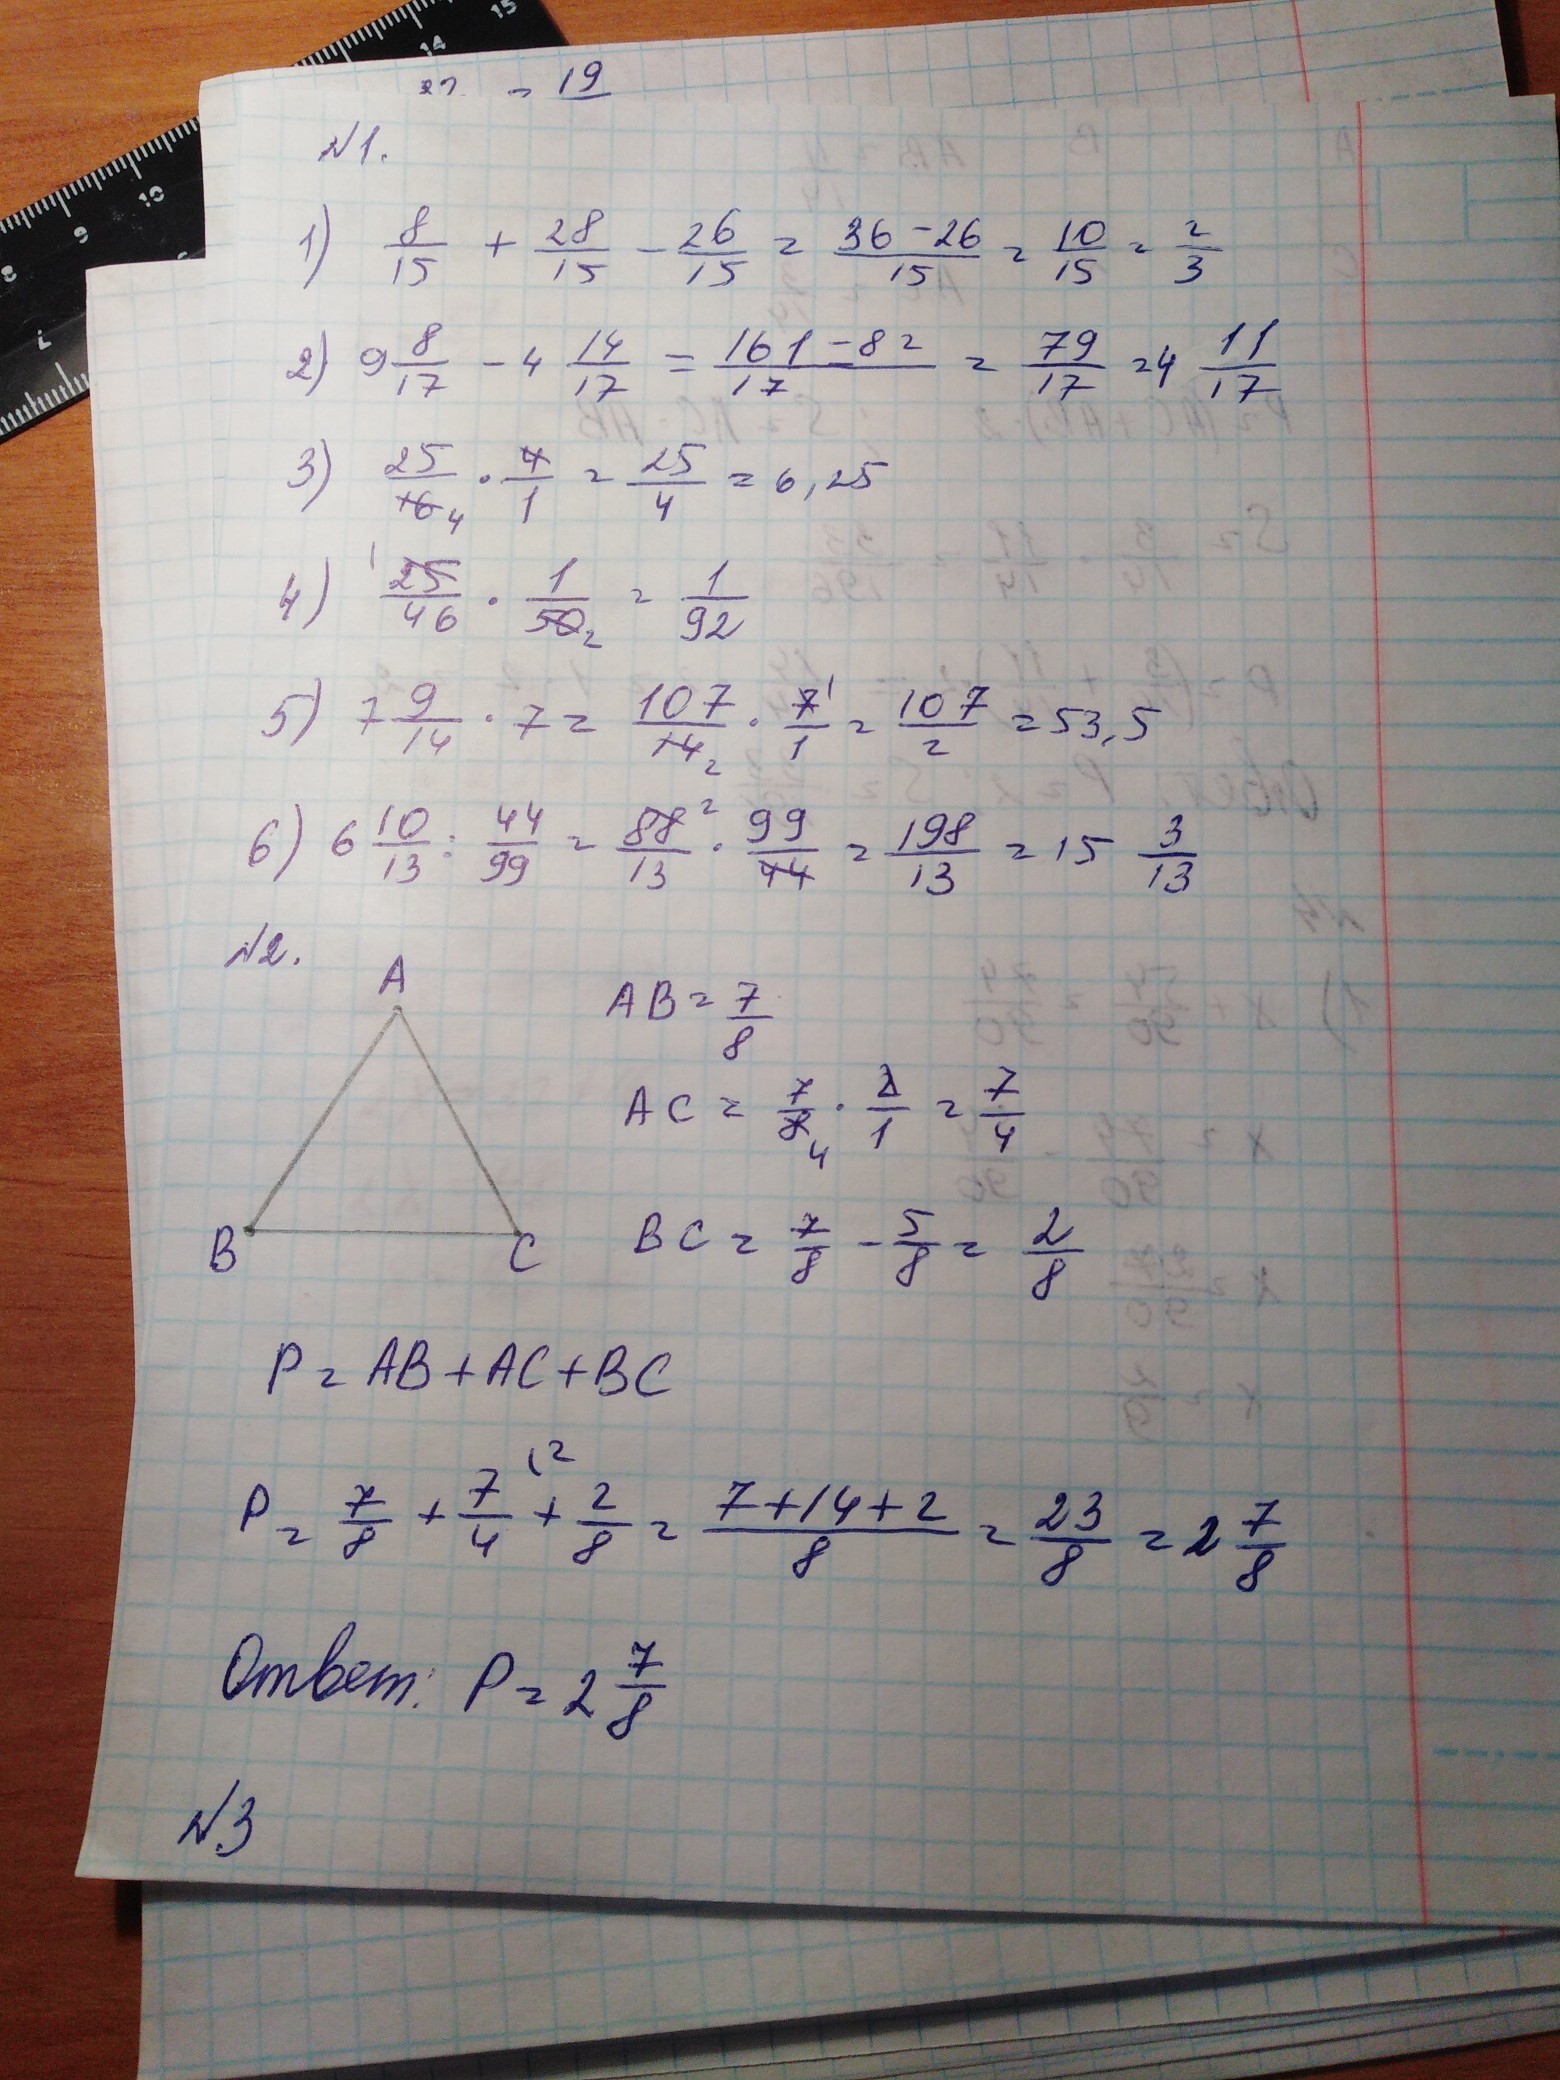 = 19
N1.
1) 8/15 + 28/15 - 26/15 = 36-26/15 = 10/15 = 2/3
2) 9 8/17 - 4 14/17 = 161-82/17 = 79/17 = 4 11/17
3) 25/16 4 · 4/1 = 25/4 = 6,25
4) 1 25/46 · 1/50 2 = 1/92
5) 7 9/14 · 7 = 107/14 2 · 7 1/1 = 107/2 = 53,5
6) 6 10/13 : 44/99 = 88 2/13 · 99/44 = 198/13 = 15 3/13
N2.
A
B
C
AB = 7/8
AC = 7/8 4 · 2/1 = 7/4
BC = 7/8 - 5/8 = 2/8
P = AB + AC + BC
P = 7/8 + 7/4 (2 + 2/8 = 7+14+2/8 = 23/8 = 2 7/8
Ответ: P = 2 7/8
N.3
8
9
10
14
15